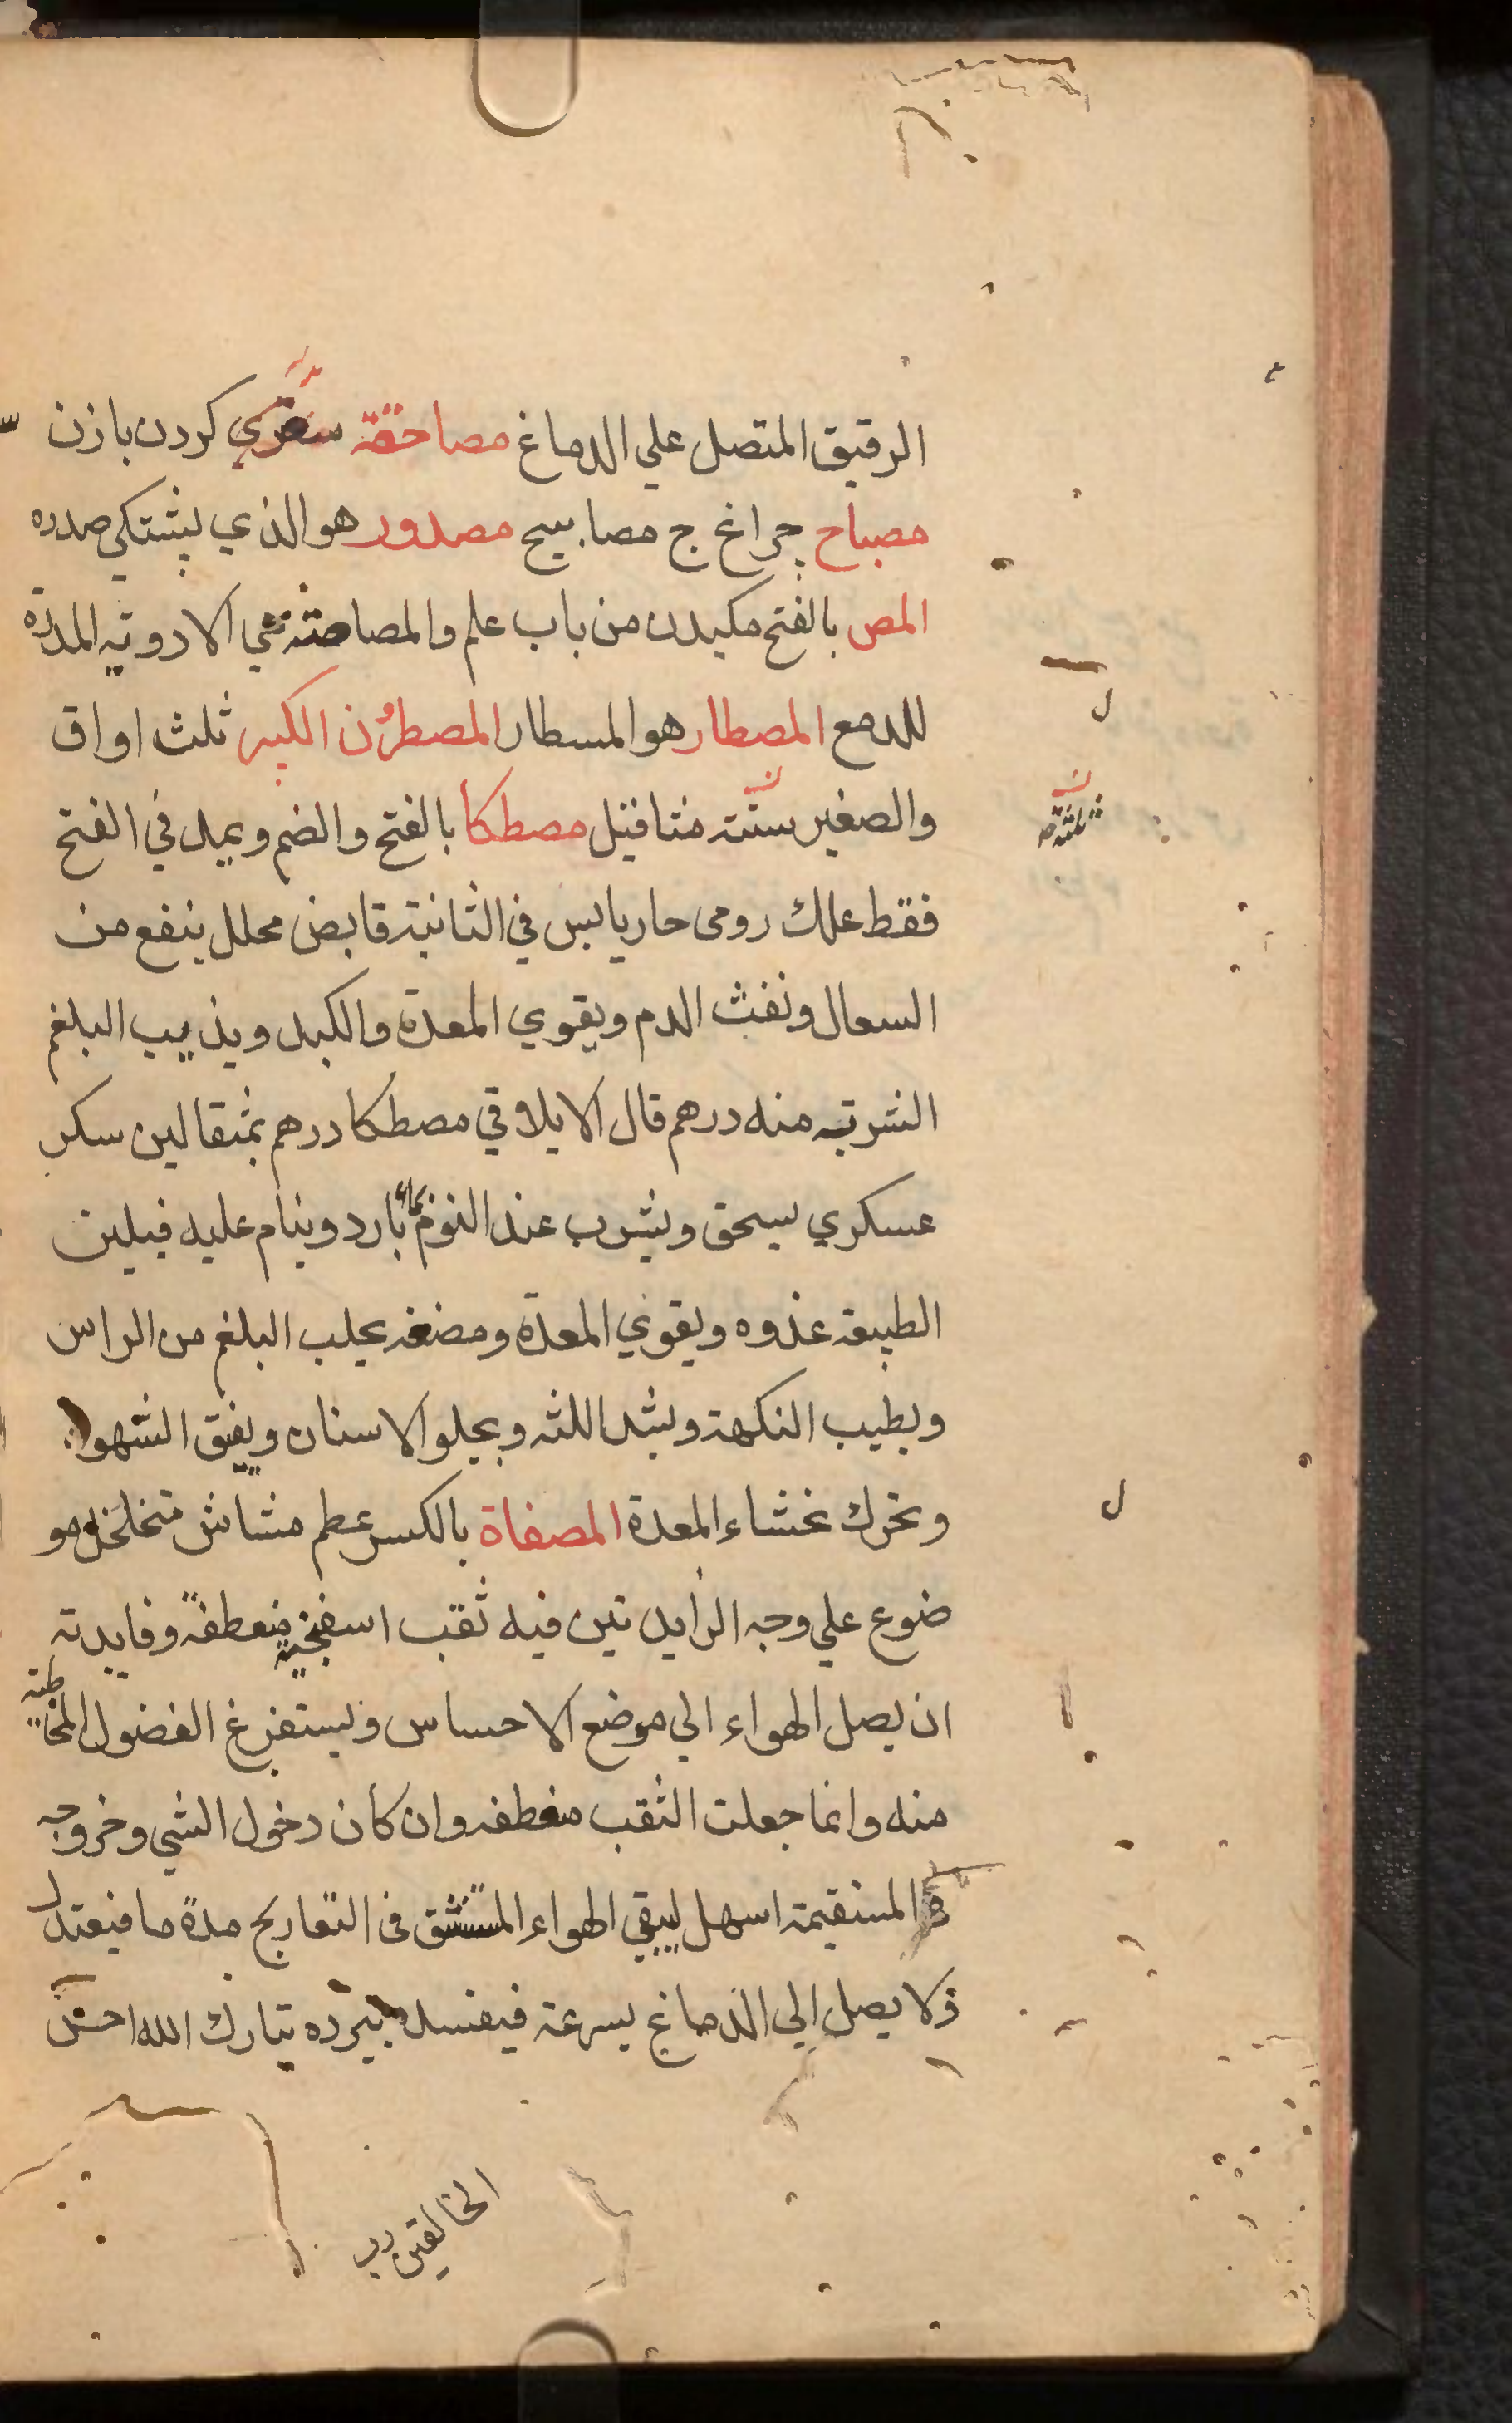 الرقيق المتصل علي الدماغ مصاحقة كردن بازن
مصباح چراغ ج مصابيح مصدور هو الذي يشتكي صدره
المص بالفتح مكيدن من باب علم والمصاصة هي الادويه المدرّة
للدمع المصطار هو المسطار المصطرُن الكبير ثلث اواق
والصغير ستّة مثاقيل مصطكا بالفتح والضم ويمد في الفتح
ثلثة
فقط علك رومى حار يابس في الثانية قابض محلل ينفع من
السعال ونفث الدم ويقوي المعدة والكبد ويذيب البلغم
الشربة منه درهم قال الايلاقي مصطكا درهم بمثقالين سكر
عسكري يسحق ويشرب عند النوم بماء بارد وينام عليه فيلين
الطبيعة غدوه ويقوي المعدة ومضغه يجلب البلغم من الراس
ويطيب النكهة ويشد اللثه ويجلو الاسنان ويفتق الشهوة
وتحرك غشاء المعدة المصفاة بالكسر عظم مشاش متخلخل مو
ضوع علي وجه الزايدتين فيه ثقب اسفنجية منعطفةً وفايدته
ان يصل الهواء الي موضع الاحساس ويستفرغ الفضول المخاطية
منه وانما جعلت الثقب منعطفه وان كان دخول الشي وخروجه
في المستقيمة اسهل ليبقي الهواء المستنشق فى التعاريج مدة ما فيعتدل
فلا يصل الي الدماغ بسرعة فيفسد ببرده تبارك الله احسن
الخالقين رب